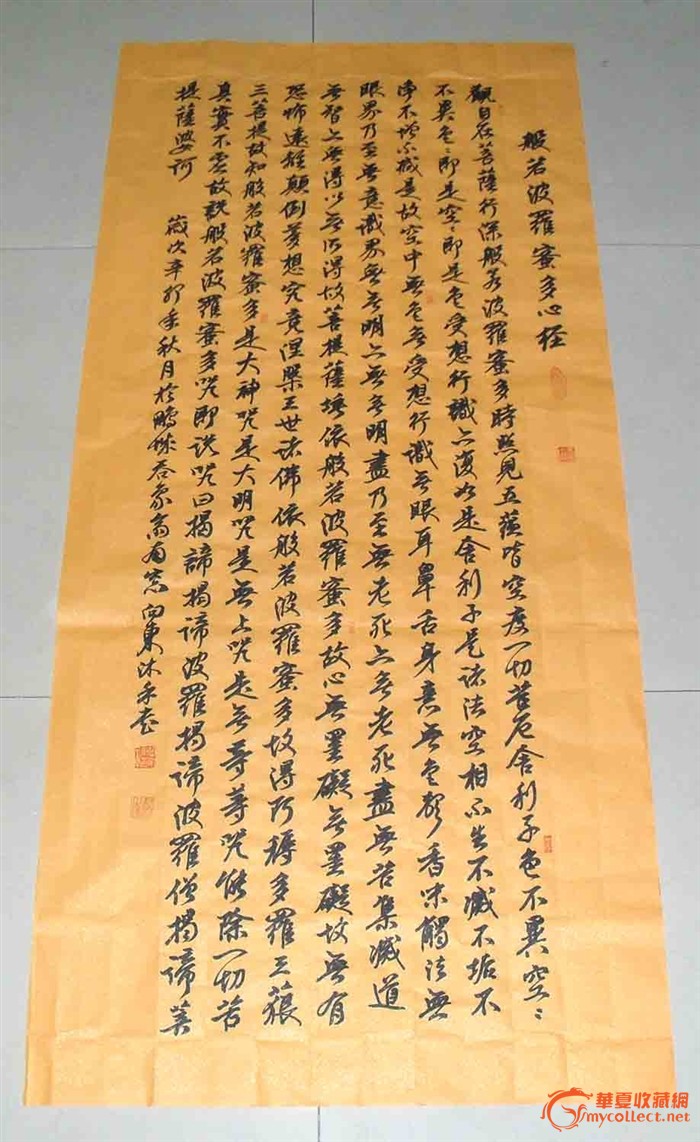 般若波羅蜜多心經
觀自在菩薩行深般若波羅蜜多時照見五蘊皆空度一切苦厄舍利子色不異空〻
不異色〻即是空〻即是色受想行識亦復如是舍利子是諸法空相不生不滅不垢不
淨不增不減是故空中無色無受想行識無眼耳鼻舌身意無色聲香味觸法無
眼界乃至無意識界無無明亦無無明盡乃至無老死亦無老死盡無苦集滅道
無智亦無得以無所得故菩提薩埵依般若波羅蜜多故心無罣礙無罣礙故無有
恐怖遠離顛倒夢想究竟涅槃三世諸佛依般若波羅蜜多故得阿耨多羅三藐
三菩提故知般若波羅蜜多是大神咒是大明咒是無上咒是無等等咒能除一切苦
真實不虛故說般若波羅蜜多咒即說咒曰揭諦揭諦波羅揭諦波羅僧揭諦菩
提薩婆訶
歲次辛卯年秋月於鵬城吞象齋南窗向東沐手書
華夏收藏網
mycollect.net